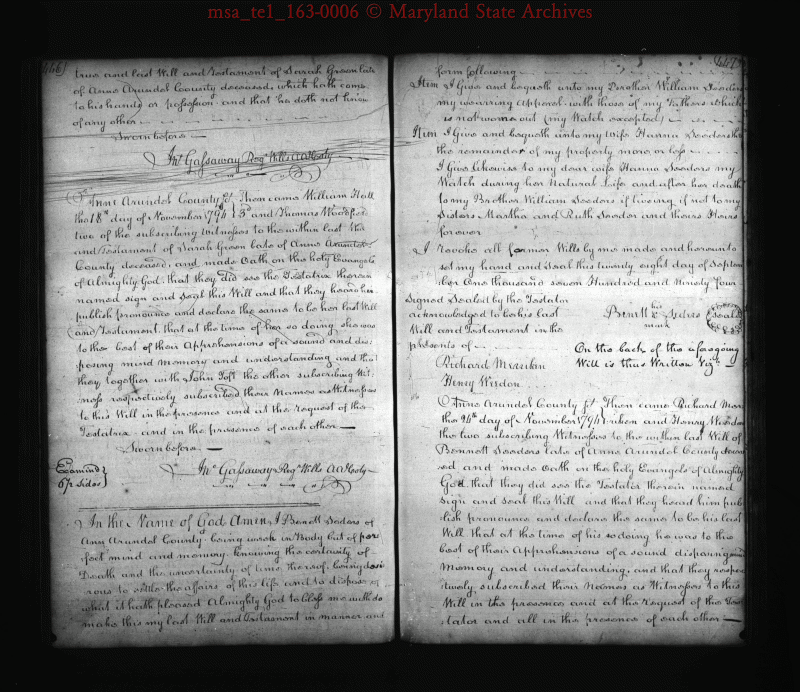 msa_te1_163-0006 © Maryland State Archives
466)
true and last Will and Testament of Sarah Green late
of Anne Arundel County deceased, which hath come
to his hands or possession and that he doth not know
of any other
Sworn before
Jno. Gassaway Regr. Wills AA Coty
Anne Arundel County Sct Then came William Hall
this 18th day of November 1794 3d and Thomas
two of the subscribing Witnesses to the within last Will
and Testament of Sarah Green late of Anne Arundel
County deceased, and made Oath on the holy Evangels
of Almighty God that they did see the Testatrix therein
named sign and seal this Will and that they heard her
publish pronounce and declare the same to be her last Will
and Testament that at the time of her so doing she was
to the best of their Apprehensions of a sound and dis
posing mind memory and understanding and that
they together with John the other subscribing Wit
ness respectively subscribed their Names as Witnesses
to this Will in the presence and at the request of the
Testatrix and in the presence of each other
Sworn before
Jno. Gassaway Regr Wills AA Coty
Examined
Sides
In the Name of God Amen I Benett Soders of
Ann Arundel County being weak in Body but of per
fect mind and memory Knowing the certainty of
Death and the uncertainty of time thereof, being desi
rous to settle the affairs of this life and to dispose of
what it hath pleased Almighty God to bless me with do
make this my last Will and Testament in manner and
447
form following
Item I Give and bequeth unto my Brother William Soaders
my wearing Apparel with those of my Fathers which
is not worn out (my Watch excepted)
Item I Give and bequeth unto my Wife Hanna Soaders
the remainder of my property more or less
I Give likewise to my dear wife Hanna Soaders my
Watch during her Natural Life and after her death
to my Brother William Soaders if living, if not to my
Sisters Martha and Ruth Soader and theirs Heirs
forever
I revoke all former Wills by me made and hereunto
set my hand and Seal this twenty eight day of Septem
ber One thousand seven Hundred and Ninety four
Signed Sealed by the Testator
acknowledged to be his last
Will and Testament in the
presents of
his
Benett x Seal
mark
Richard Merriken
Henry Wesdon
On the back of the aforegoing
Will is thus Written Viz
Anne Arundel County Sct Then came Richard Mer
this 26th day of November 1794 riken and Henry Wesdon
the two subscribing Witnesses to the within last Will of
Bennett Soaders late of Anne Arundel County deceas
ed and made Oath on the holy Evangels of Almighty
God that they did see the Testator therein named
Sign and Seal this Will and that they heard him pub
lish pronounce and declare the same to be his last
Will that at the time of his so doing he was to the
best of their Apprehensions of a sound disposing
Memory and understanding, and that they respec
tively subscribed their Names as Witnesses to this
Will in the presence and at the request of the Tes
tator and all in the presence of each other